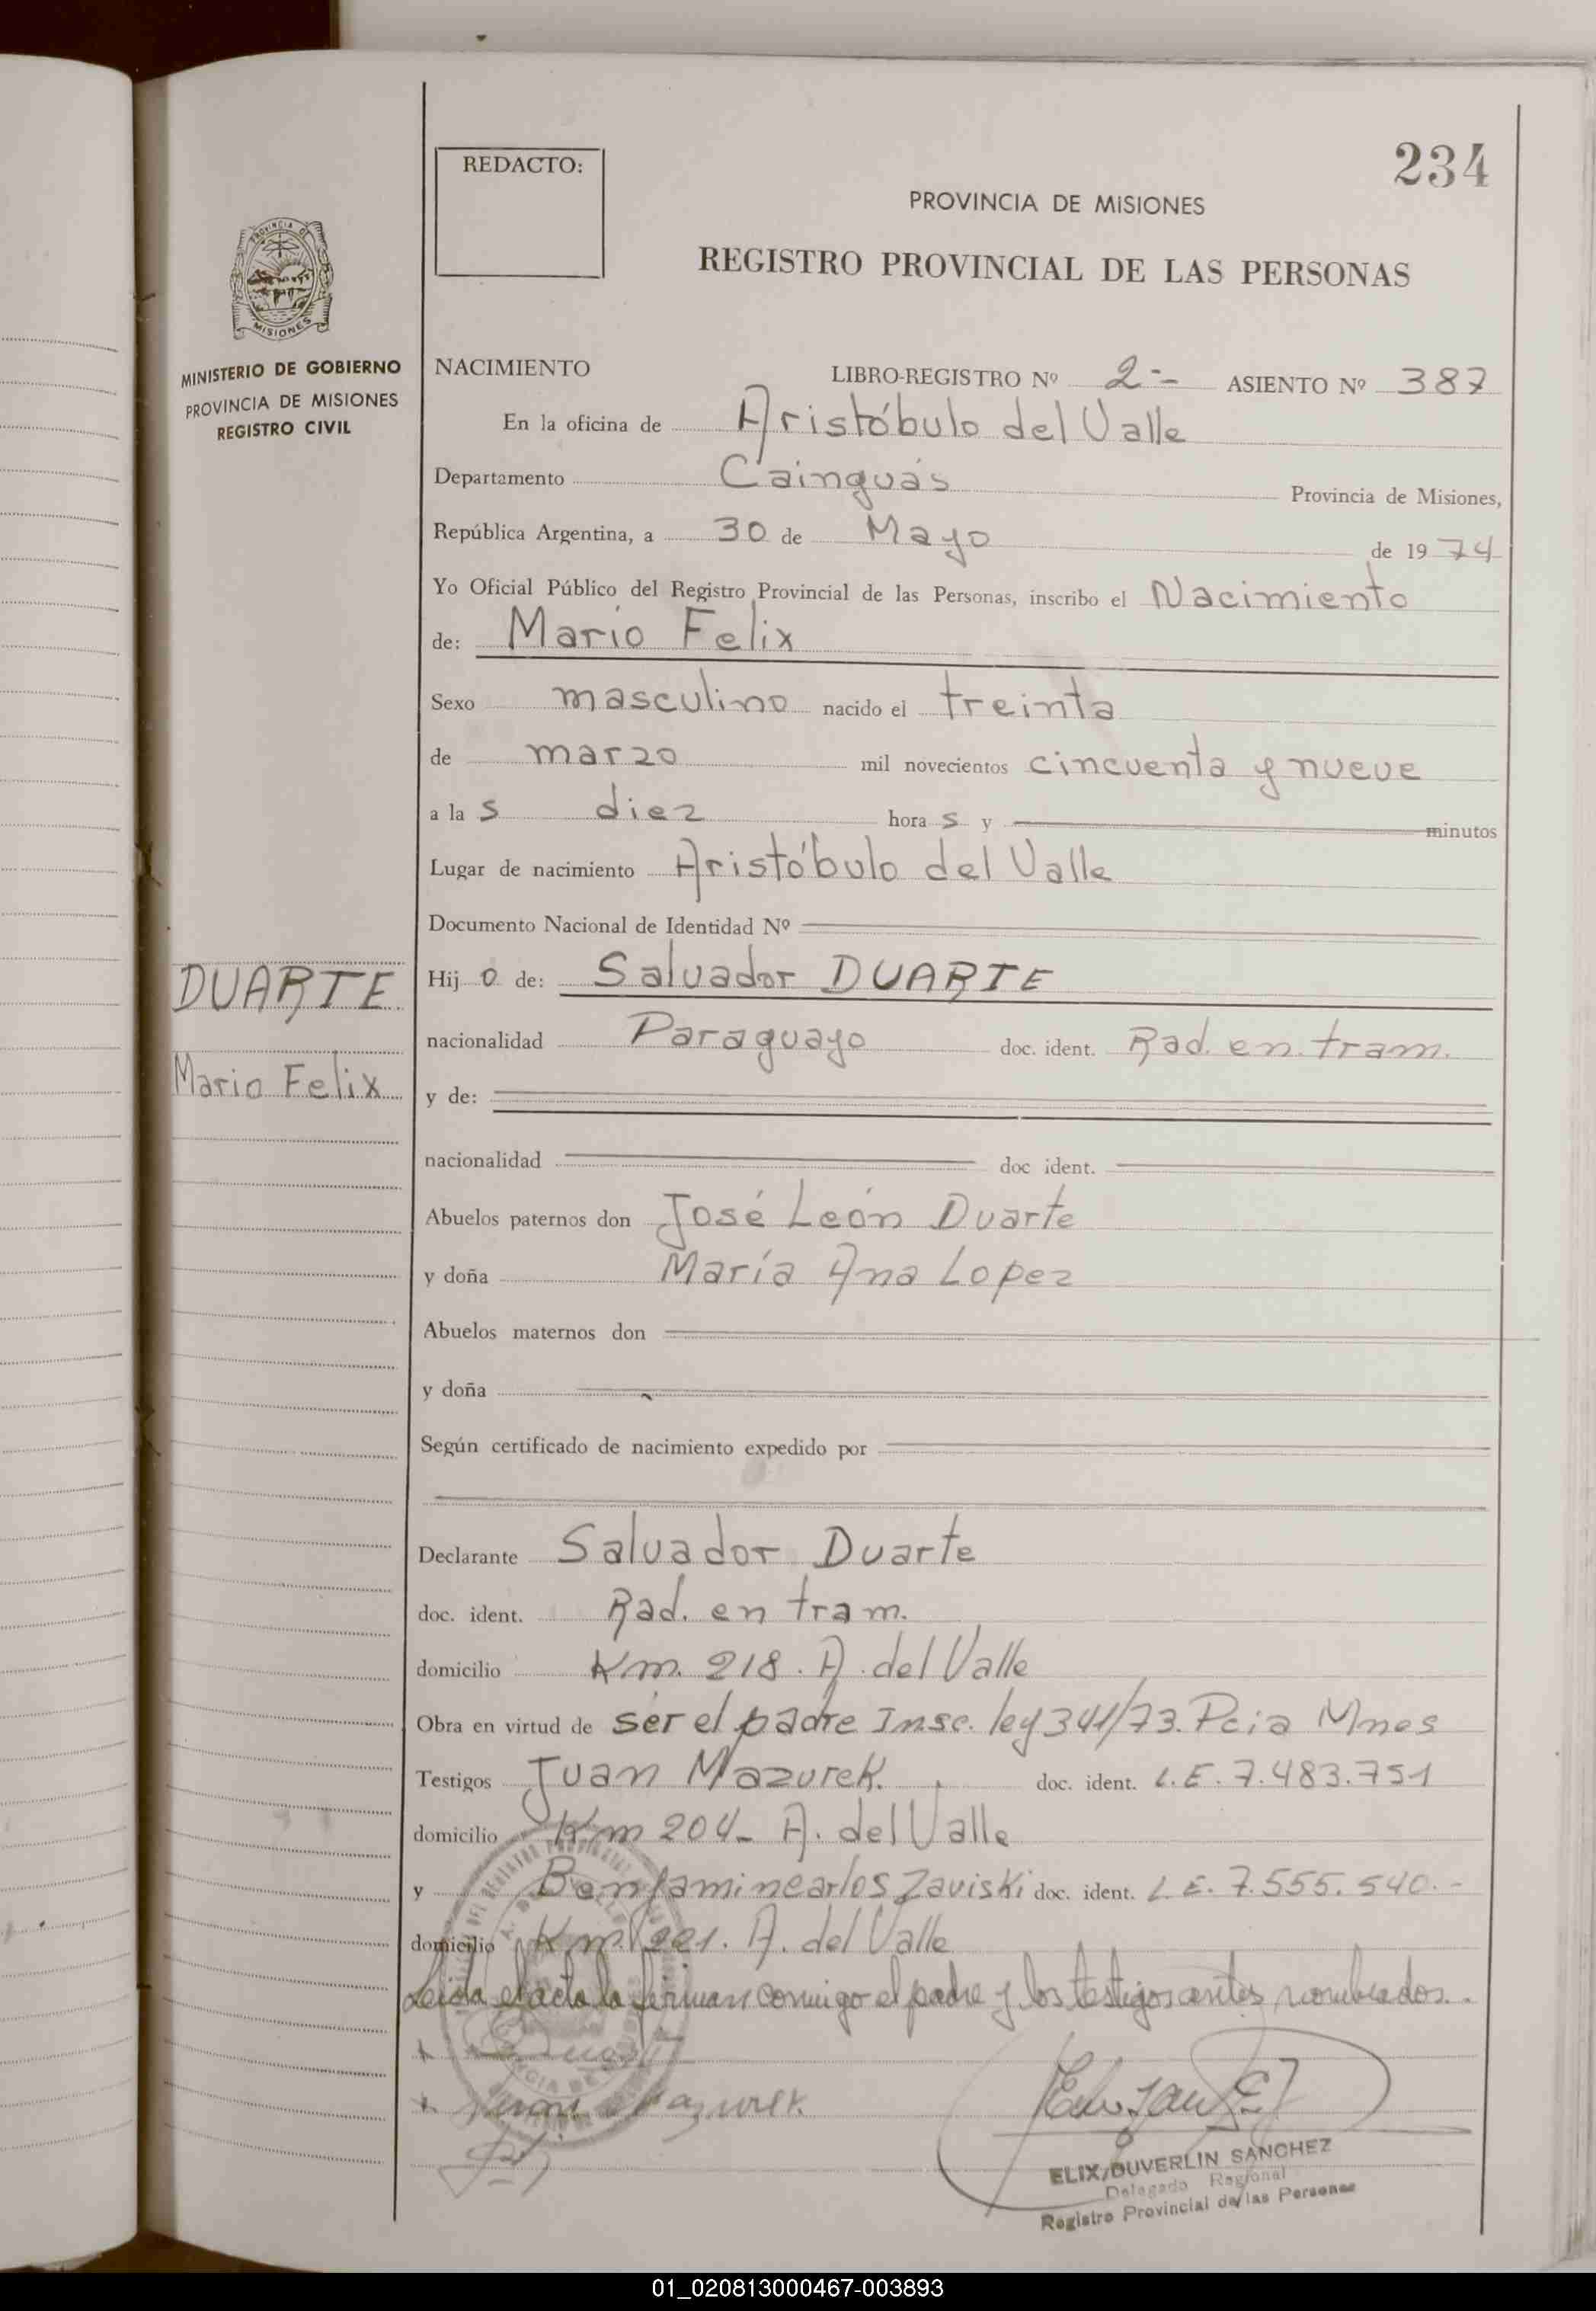 234
REDACTO:
PROVINCIA DE MISIONES
REGISTRO PROVINCIAL DE LAS PERSONAS
PROVINCIA DE
MISIONES
MINISTERIO DE GOBIERNO
PROVINCIA DE MISIONES
REGISTRO CIVIL
NACIMIENTO LIBRO-REGISTRO Nº 2-- ASIENTO Nº 387
En la oficina de Aristóbulo del Valle
Departamento Cainguás Provincia de Misiones,
República Argentina, a 30 de Mayo de 1974
Yo Oficial Público del Registro Provincial de las Personas, inscribo el Nacimiento
de: Mario Felix
Sexo masculino nacido el treinta
de marzo mil novecientos cincuenta y nueve
a las diez horas y minutos
Lugar de nacimiento Aristóbulo del Valle
Documento Nacional de Identidad Nº
DUARTE
Hijo de: Salvador DUARTE
nacionalidad Paraguayo doc. ident. Rad. en tram.
Mario Felix
y de:
nacionalidad doc ident.
Abuelos paternos don José León Duarte
y doña María Ana Lopez
Abuelos maternos don
y doña
Según certificado de nacimiento expedido por
Declarante Salvador Duarte
doc. ident. Rad. en tram.
domicilio Km. 218. A. del Valle
Obra en virtud de ser el padre Insc. ley 341/73. Pcia Mnes
Testigos Juan Mazurek. doc. ident. L.E. 7.483.751
domicilio Km 204- A. del Valle
y Benjamin Carlos Zaviski doc. ident. L.E. 7.555.540.-
domicilio Km. 221. A. del Valle
Leida el acta la firman conmigo el padre y los testigos antes nombrados.
ELIX DUVERLIN SANCHEZ
Delegado Regional
Registro Provincial de las Personas
01_020813000467-003893